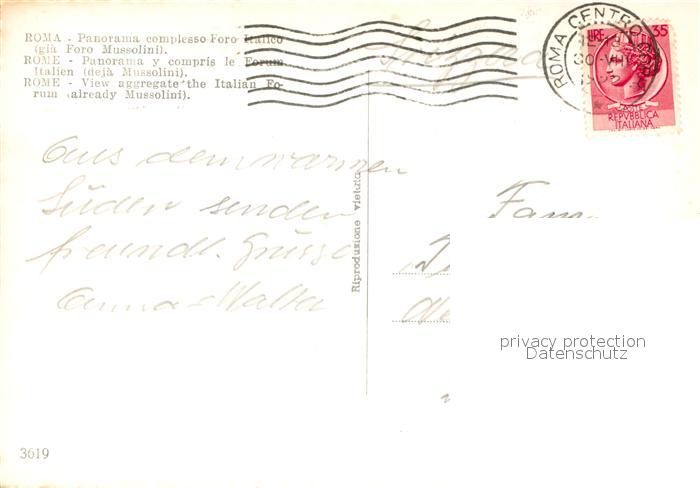 ROMA - Panorama complesso Foro Italico
(già Foro Mussolini).
ROME - Panorama y compris le Forum
Italien (dejà Mussolini).
ROME - View aggregate the Italian Fo-
rum (already Mussolini).
Svizzera
ROMA CENTRO
30·VIII
LIRE 35
POSTE
REPVBBLICA
ITALIANA
Aus dem warmen
Süden senden
freundl. Grüsse
Anna & Walter
Riproduzione vietata
Fam
privacy protection
Datenschutz
3619